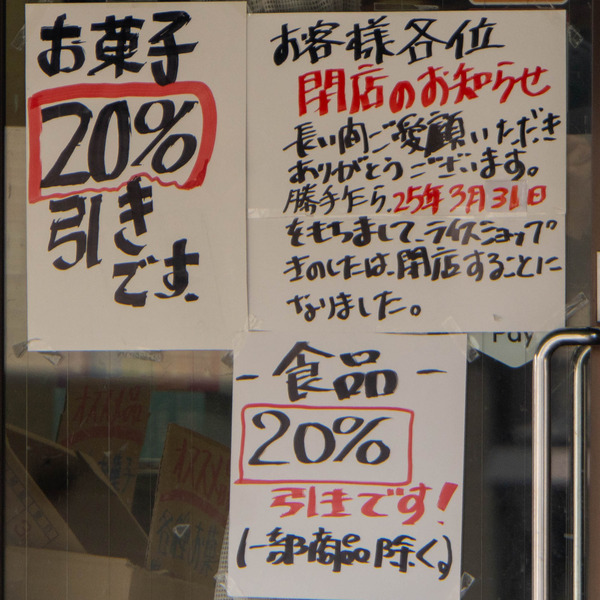 お菓子
20%
引き
です.
お客様各位
閉店のお知らせ
長い間ご愛顧いただき
ありがとうございます。
勝手乍ら、25年3月31日
をもちまして、ライスショップ
きのしたは、閉店することに
なりました。
Pay
-食品-
20%
引きです!
(一部商品除く)
オススメ品
オススメ